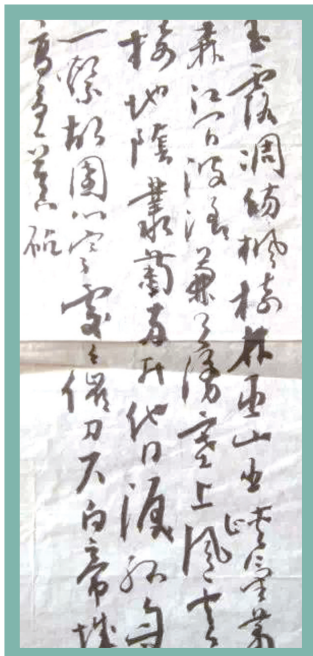 玉露凋傷楓樹林巫山巫峡氣蕭
森江間波浪兼天湧塞上風雲
接地陰叢菊兩開他日淚孤舟
一繫故園心寒衣處々催刀尺白帝城
高急暮砧